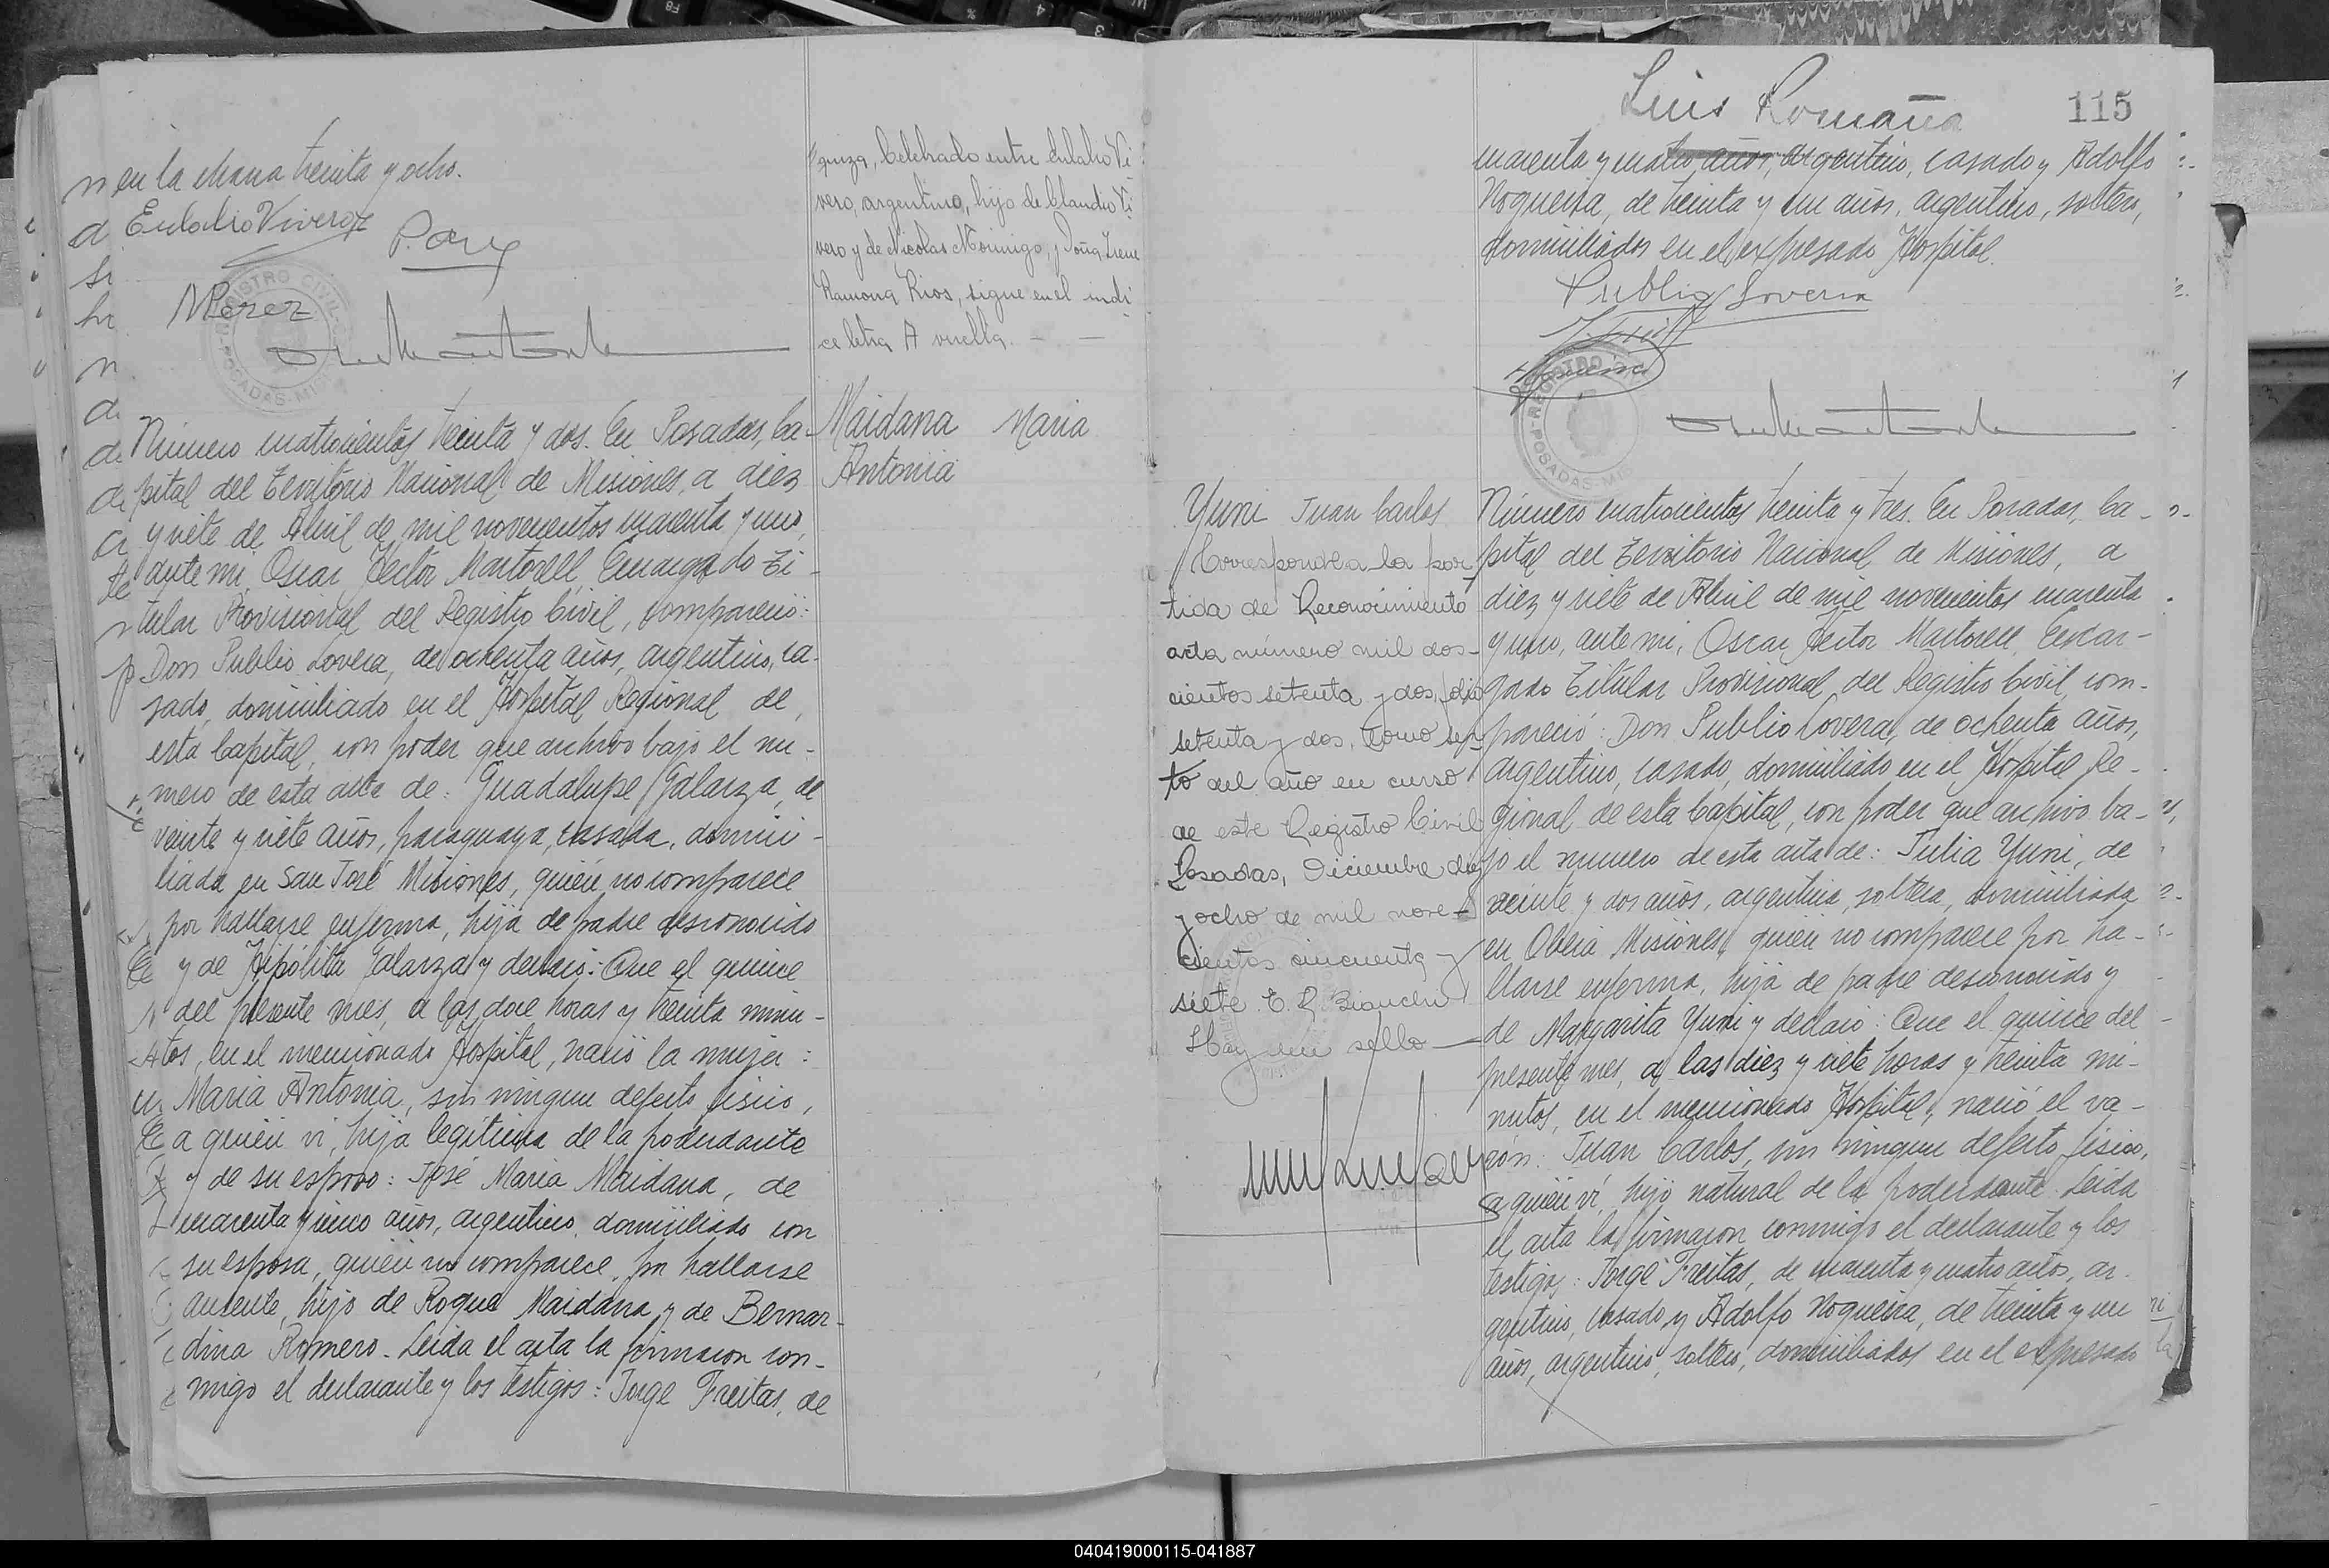 en la chacra treinta y ocho.
Eulalio Viveroz
MPerez
quiza, Celebrado entre Eulalio Vi
vero, argentino, hijo de Claudio Vi
vero y de Nicolas Mornigo, y Doña Irene
Ramona Rios, sigue en el indi
ce letra A vuelta. — —
Maidana Maria
Antonia
Número cuatrocientos treinta y dos. En Posadas, Ca-
pital del Territorio Nacional de Misiones, a diez
y siete de Abril de mil novecientos cuarenta y uno,
ante mi, Oscar Héctor Martorell, Encargado Ti-
tular Provisional del Registro Civil, compareció:
Don Publio Lovera, de ochenta años, argentino, ca-
sado, domiciliado en el Hospital Regional de
esta Capital, con poder que archivo bajo el nú-
mero de esta acta de: Guadalupe Galarza, de
veinte y siete años, paraguaya, casada, domici-
liada en San José Misiones, quién no comparece
por hallarse enferma, hija de padre desconocido
y de Hipólita Galarza y declaró: Que el quince
del presente mes, a las doce horas y treinta minu-
tos, en el mencionado Hospital, nació la mujer:
Maria Antonia, sin ningun defecto fisico,
a quién vi, hija legitima de la poderdante
y de su esposo: José Maria Maidana, de
cuarenta y cinco años, argentino, domiciliado con
su esposa, quién no comparece por hallarse
ausente, hijo de Roque Maidana y de Bernar-
dina Romero. Leida el acta la firmaron con-
migo el declarante y los testigos: Jorge Freitas, de
Luis Romaña
115
cuarenta y cuatro años, argentino, casado y Adolfo
Nogueira, de treinta y un años, argentino, soltero,
domiciliados en el expresado Hospital.
Publio Lovera
Yuni Juan Carlos
Corresponde a la par
tida de Reconocimiento
acta número mil dos-
cientos setenta y dos, folio
setenta y dos, tomo sex
to del año en curso
de este Registro Civil
Posadas, Diciembre diez
y ocho de mil nove-
cientos cincuenta y
siete. E. R. Bianchi
Hay un sello —
Número cuatrocientos treinta y tres. En Posadas, Ca-
pital del Territorio Nacional de Misiones, a
diez y siete de Abril de mil novecientos cuarenta
y uno, ante mi, Oscar Héctor Martorell, Encar-
gado Titular Provisional del Registro Civil, com-
pareció: Don Publio Lovera, de ochenta años,
argentino, casado, domiciliado en el Hospital Re-
gional de esta Capital, con poder que archivo ba-
jo el número de esta acta de: Julia Yuni, de
veinte y dos años, argentina, soltera, domiciliada
en Oberá Misiones, quién no comparece por ha-
llarse enferma, hija de padre desconocido y
de Margarita Yuni y declaró: Que el quince del
presente mes, a las diez y siete horas y treinta mi-
nutos, en el mencionado Hospital, nació el va-
rón: Juan Carlos, sin ningun defecto fisico,
a quién vi, hijo natural de la poderdante. Leida
el acta la firmaron conmigo el declarante y los
testigos: Jorge Freitas, de cuarenta y cuatro años, ar-
gentino, casado y Adolfo Nogueira, de treinta y un
años, argentino, soltero, domiciliados en el expresado
040419000115-041887